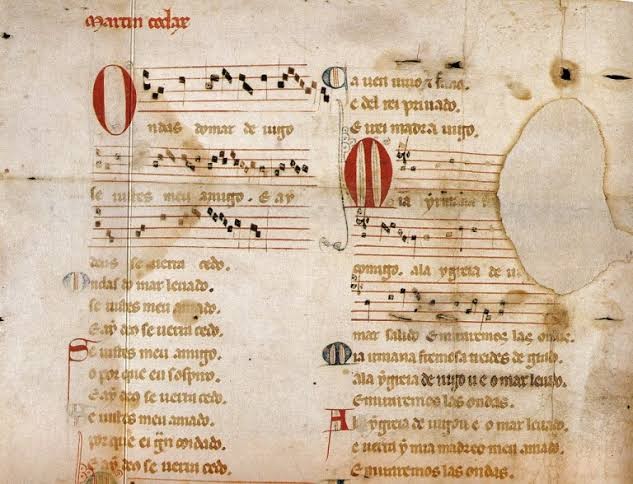 Martin codax
Ondas do mar de uigo
se uistes meu amigo. E ay
deus se uerra cedo.
Ondas do mar leuado.
se uistes meu amado.
E ay deo se uerra cedo.
Se uistes meu amigo.
o por que eu sospiro.
E ay deo se uerra cedo.
Se uistes meu amado.
por que ei gñ coidado.
E ay deo se uerra cedo.
Ca uen uiuo e sano.
e del rei priuado.
E irei madr a uigo.
Mia yrmana
comigo. ala ygreia de
mar salido E miraremos las
Mia irmana fremosa treides de grado.
ala ygreia de uigo u e o mar leuado.
E miraremos las ondas.
A la ygreia de uigo u e o mar leuado.
e uerra y mia madre o meu amado.
E miraremos las ondas.